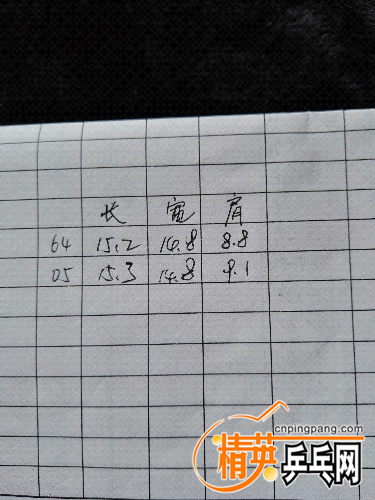 长 宽 肩
64 15.2 14.8 8.8
05 15.3 14.8 9.1
cnpingpang.com
精英乒乓网